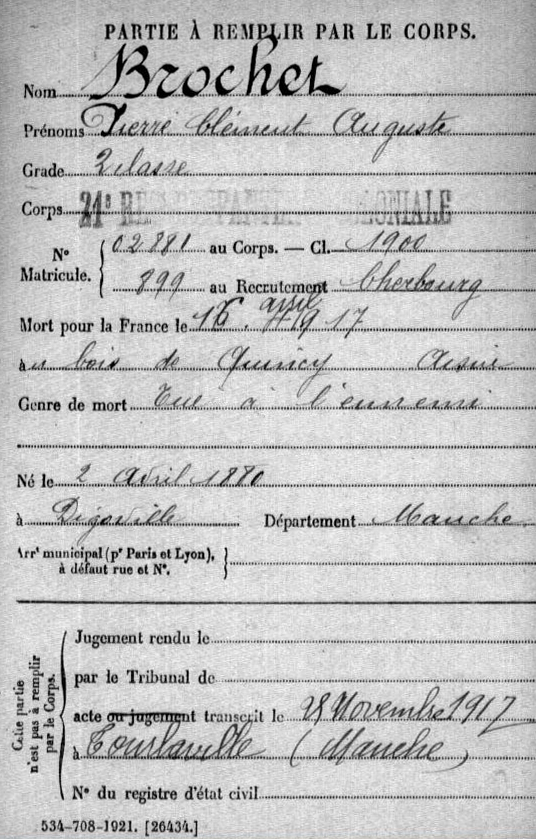 PARTIE À REMPLIR PAR LE CORPS.
Nom Brochet
Prénoms Pierre Clément Auguste
Grade 2 classe
Corps 21e COLONIALE
No Matricule. 02881 au Corps. — Cl. 1900
899 au Recrutement Cherbourg
Mort pour la France le 16 avril 1917
à bois de Quincy Aisne
Genre de mort Tué à l'ennemi
Né le 2 Avril 1880
à Digoville Département Manche
Arrt municipal (pr Paris et Lyon),
à défaut rue et No.
Cette partie
n'est pas à remplir
par le Corps.
Jugement rendu le
par le Tribunal de
acte ou jugement transcrit le 28 Novembre 1917
à Tourlaville (Manche)
No du registre d'état civil
534-708-1921. [26434.]